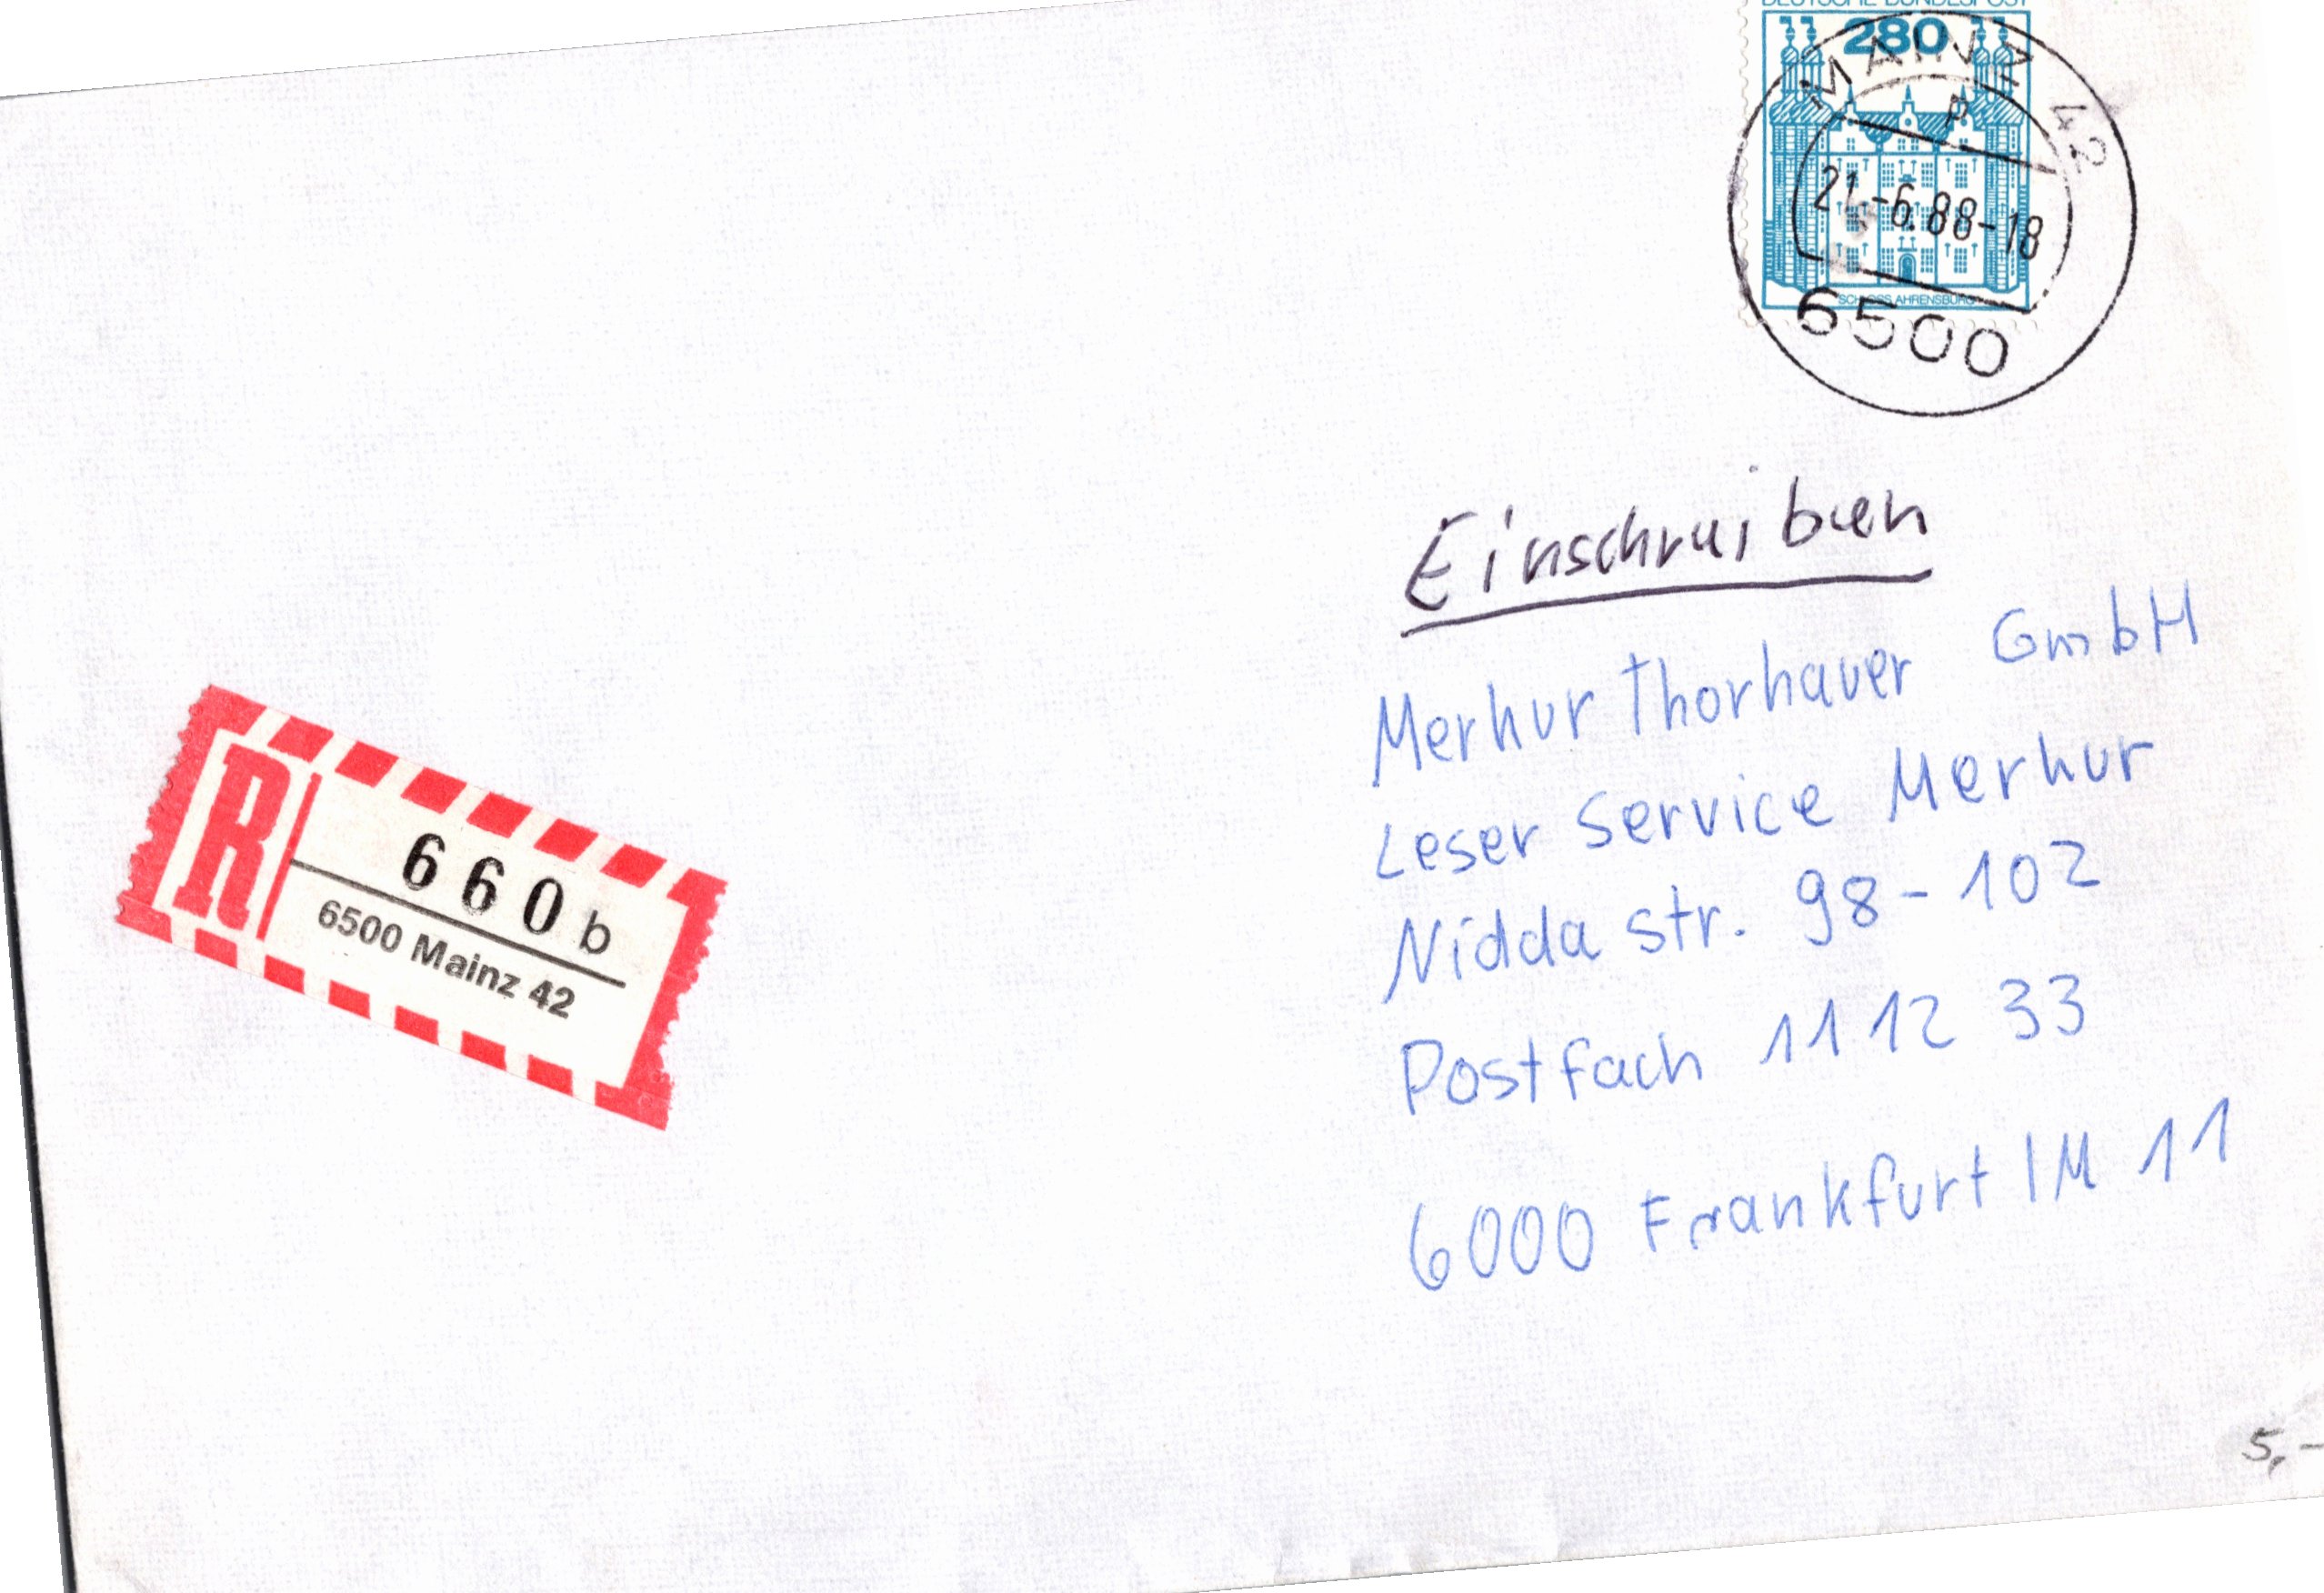 DEUTSCHE BUNDESPOST
280
MAINZ 42
p
21.-6.88-18
6500
SCHLOSS AHRENSBURG
Einschreiben
Merkur Thorhauer GmbH
Leser Service Merkur
Nidda str. 98-102
Postfach 11 12 33
6000 Frankfurt/M 11
R
660 b
6500 Mainz 42
5,-